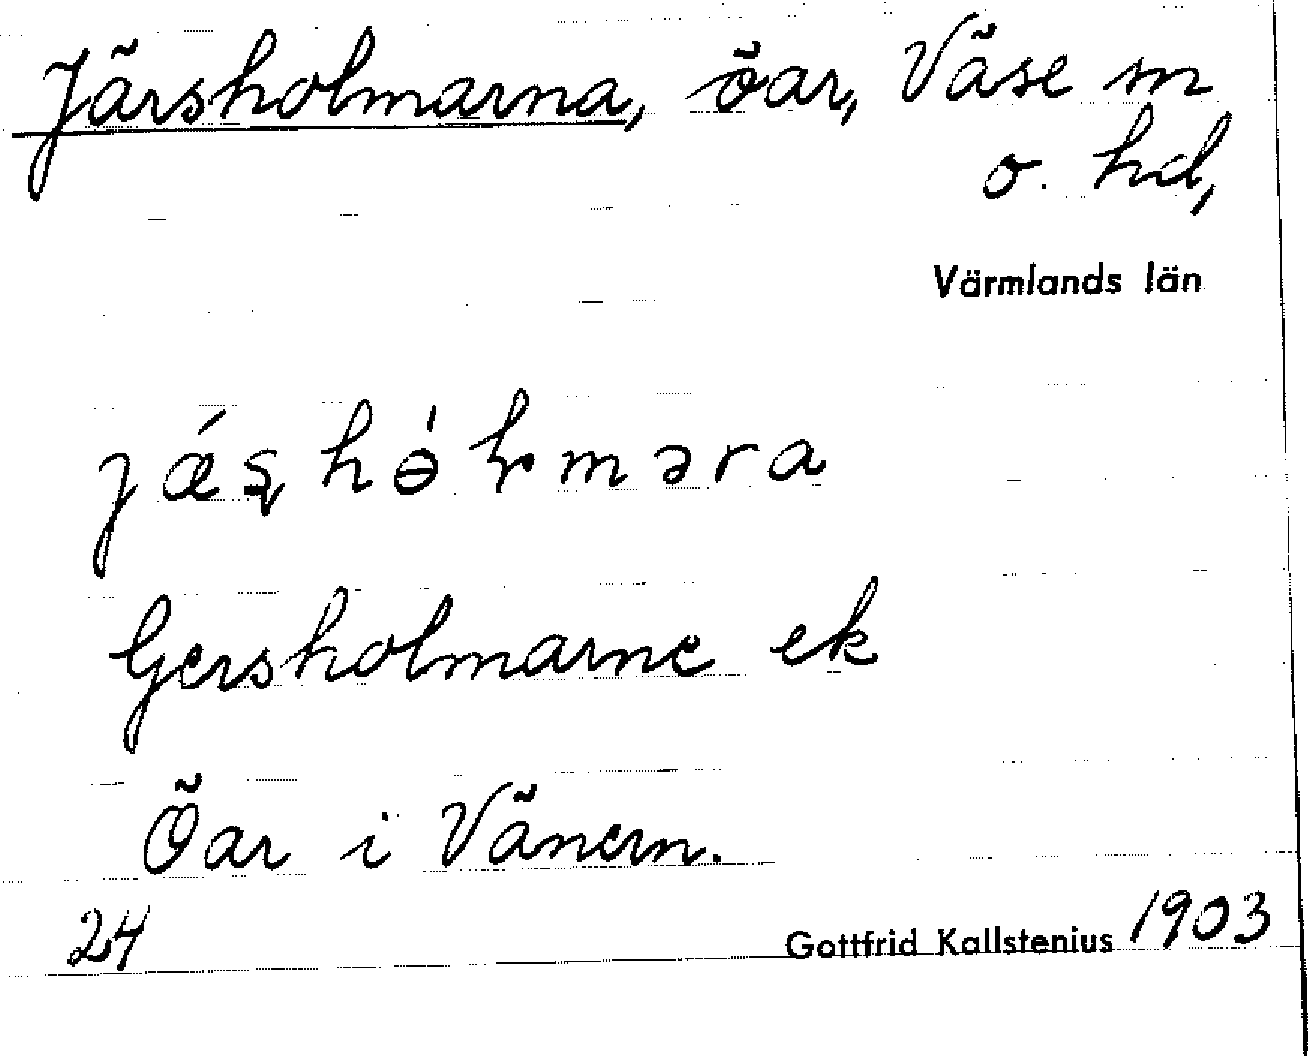 Järsholmarna, öar, Väse sn
o. hd,
Värmlands län
Gersholmarne ek
Öar i Vänern.
24 Gottfrid Kallstenius 1903